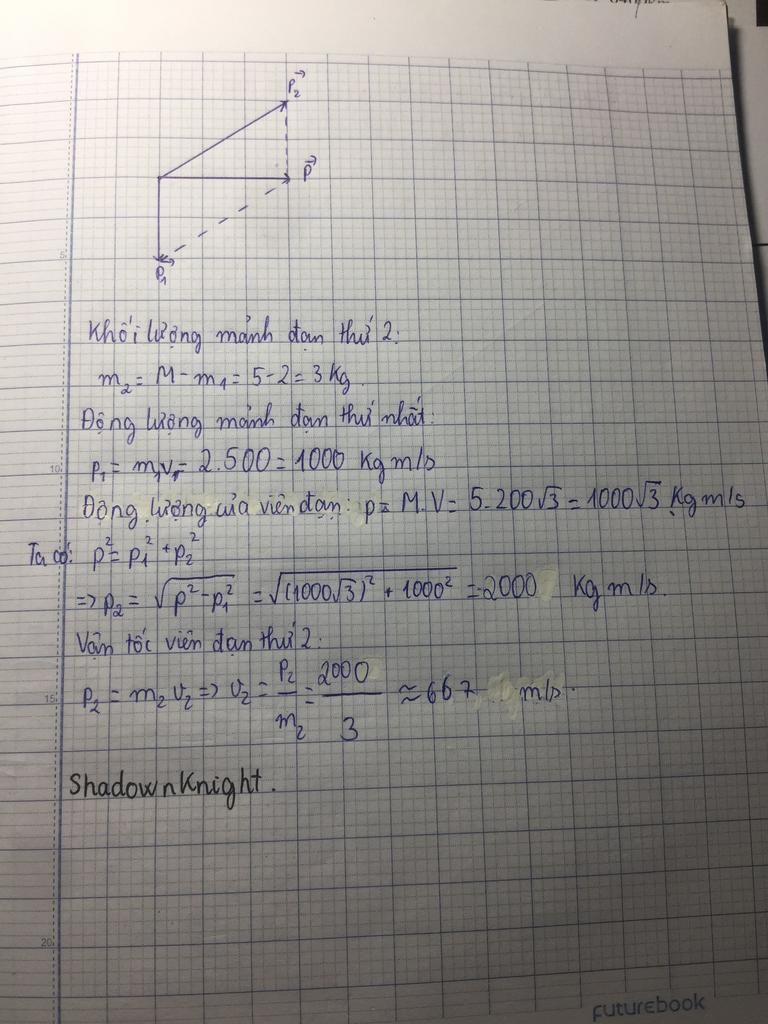 P₂⃗
P⃗
5
P₁⃗
Khối lượng mảnh đạn thứ 2:
m₂ = M - m₁ = 5 - 2 = 3 Kg.
Động lượng mảnh đạn thứ nhất:
10
p₁ = m₁v₁ = 2.500 = 1000 Kg m/s
Động lượng của viên đạn: p = M.V = 5.200√3 = 1000√3 Kg m/s
Ta có: p² = p₁² + p₂²
=> p₂ = √(p² - p₁²) = √((1000√3)² + 1000²) = 2000 Kg m/s.
Vận tốc viên đạn thứ 2:
15
P₂ = m₂ v₂ => v₂ = P₂/m₂ = 2000/3 ≈ 667 m/s.
ShadownKnight.
20
FUTUREBOOK